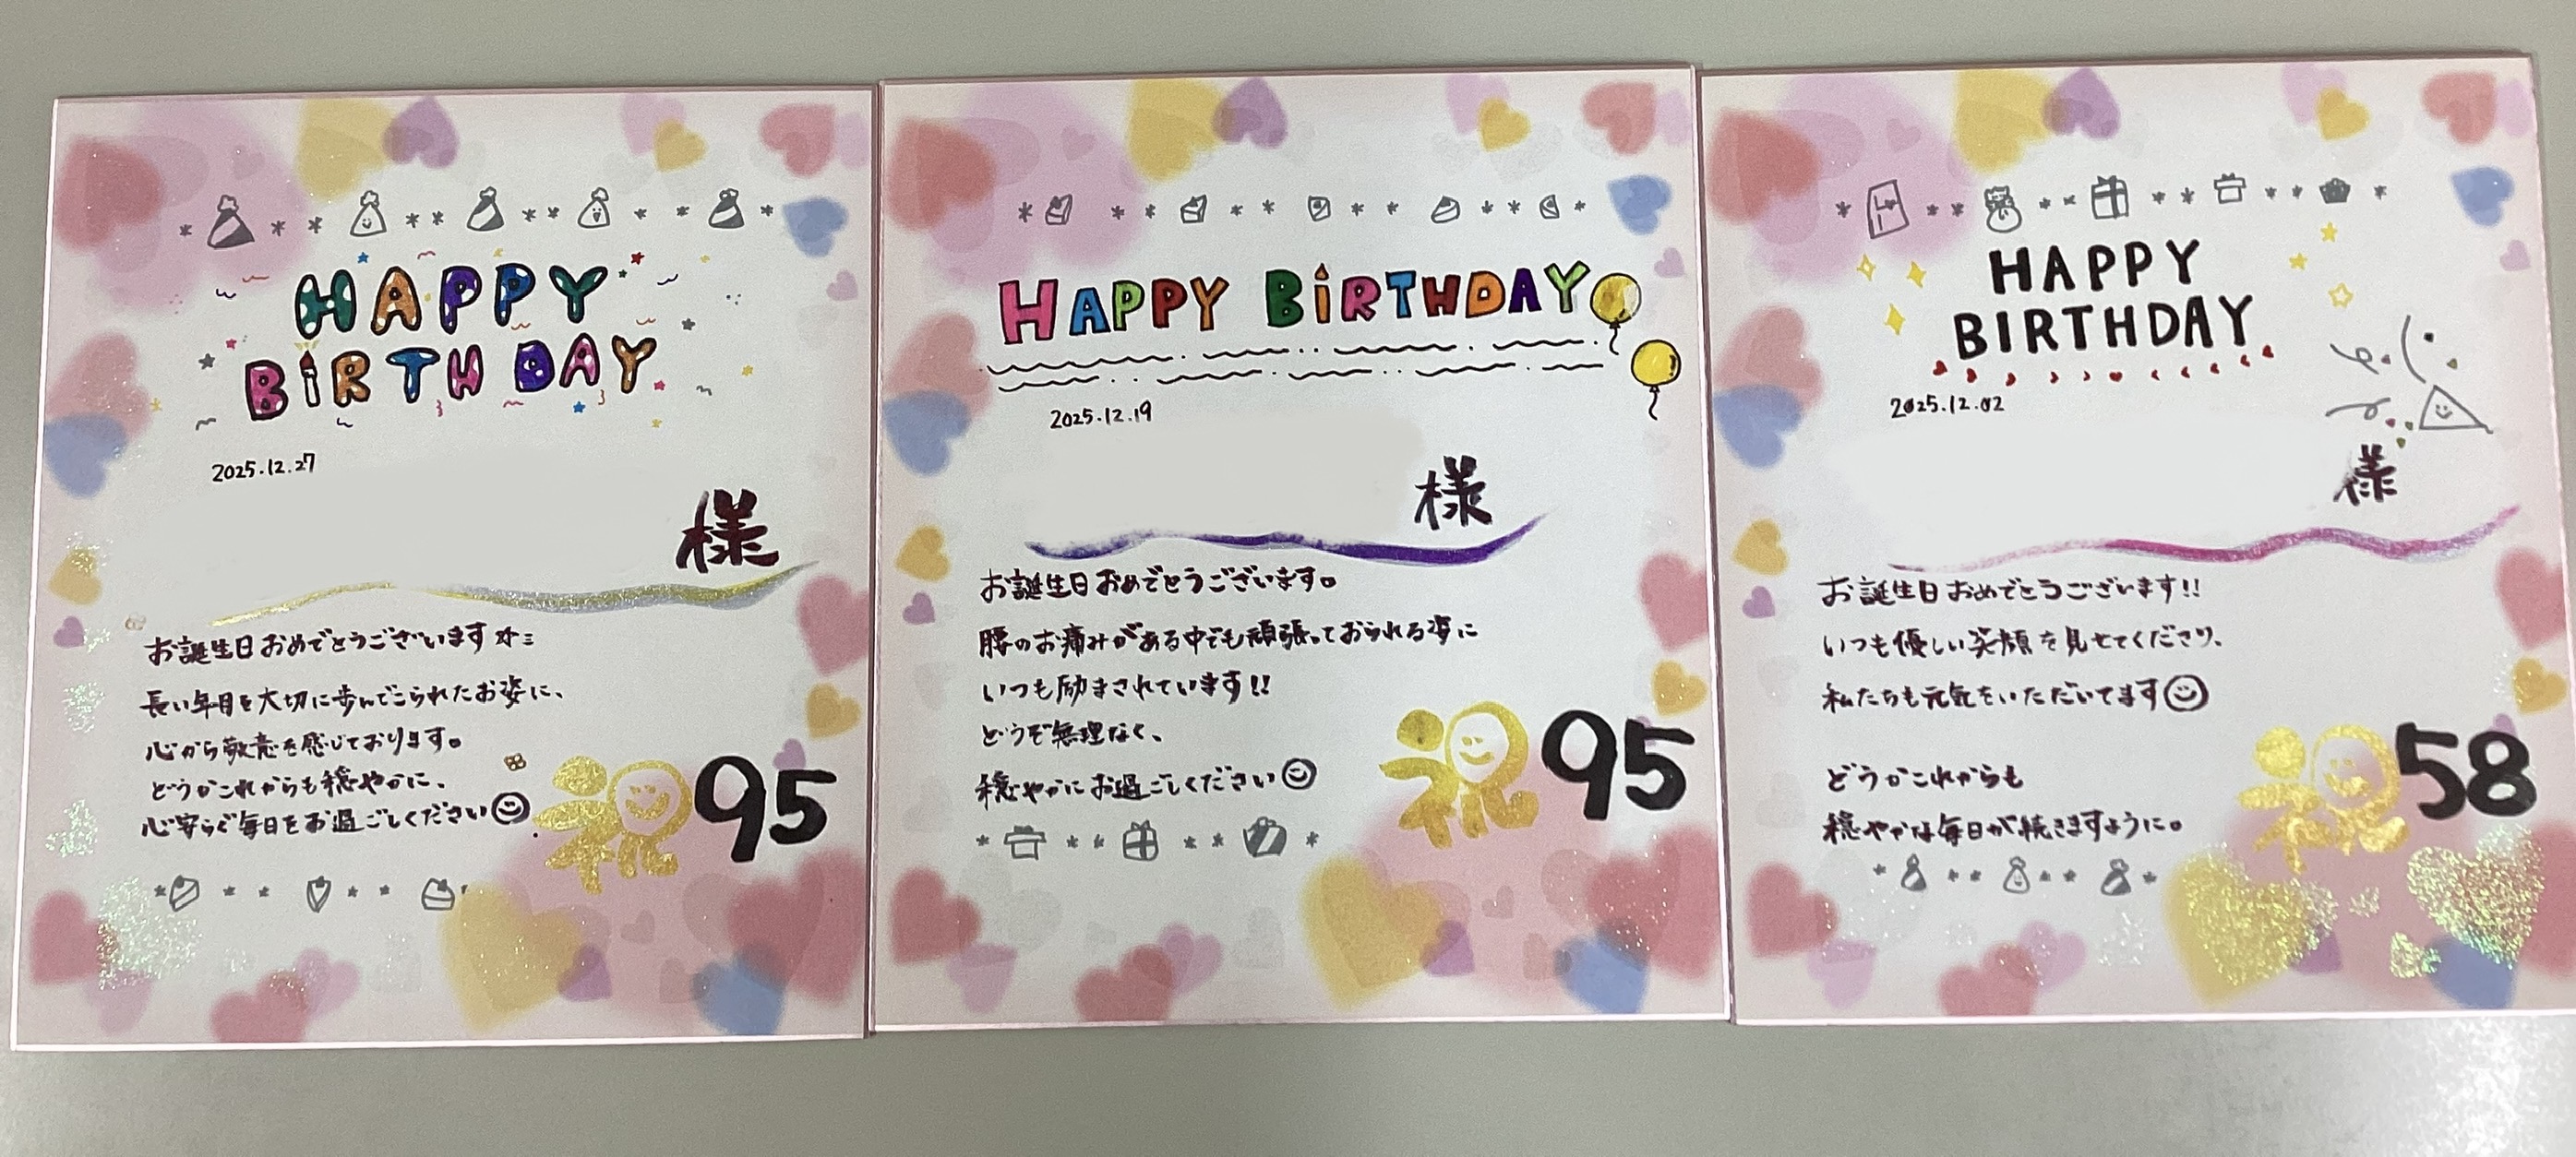 HAPPY
BIRTHDAY
2025.12.27
様
お誕生日おめでとうございます
長い年月を大切に歩んでこられたお姿に、
心から敬意を感じております。
どうかこれからも穏やかに、
心安らぐ毎日をお過ごしください
祝95
HAPPY BIRTHDAY
2025.12.19
様
お誕生日おめでとうございます。
腰のお痛みがある中でも頑張っておられる姿に
いつも励まされています!!
どうぞ無理なく、
穏やかにお過ごしください
祝95
HAPPY
BIRTHDAY
2025.12.02
様
お誕生日おめでとうございます!!
いつも優しい笑顔を見せてくださり、
私たちも元気をいただいてます
どうかこれからも
穏やかな毎日が続きますように。
祝58